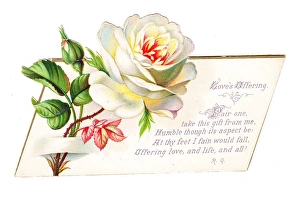 Love's Offering.
Fair one,
take this gift from me,
Humble though its aspect be:
At thy feet I fain would fall,
Offering love, and life, and all!